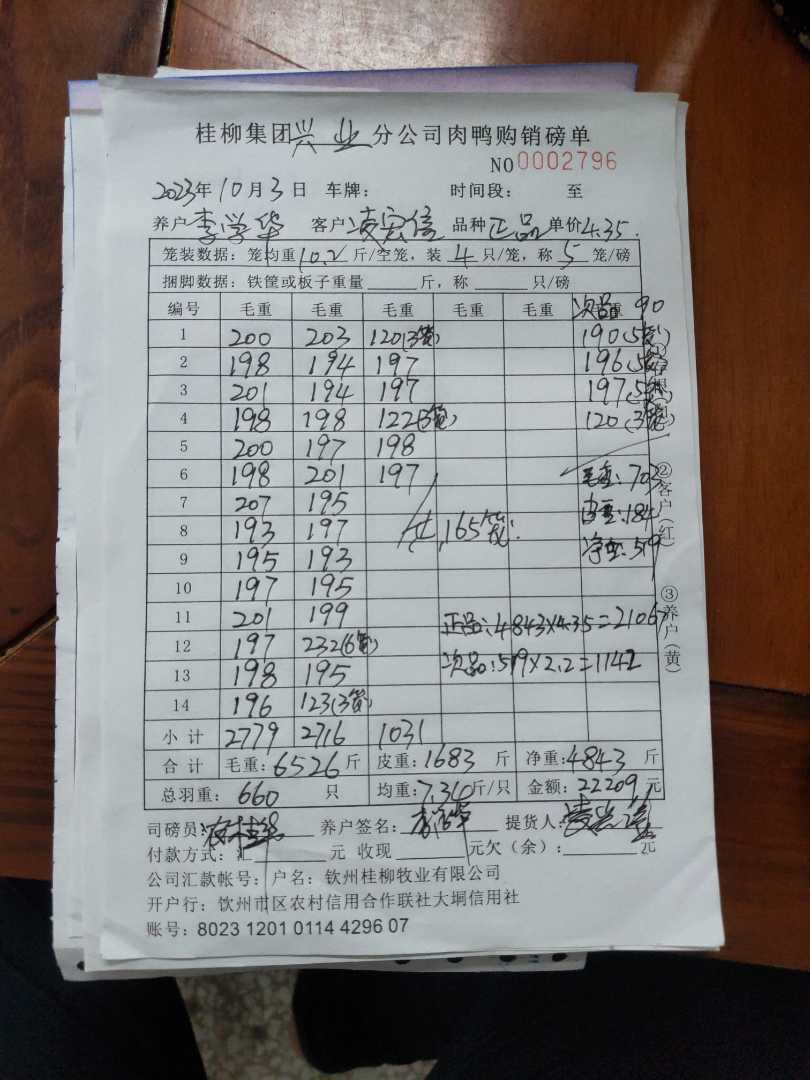 桂柳集团兴业分公司肉鸭购销磅单
NO 0002796
2023年10月3日 车牌: 时间段: 至
养户 李学华 客户 凌宏信 品种 正品 单价 4.35.
笼装数据: 笼均重 10.2 斤/空笼, 装 4 只/笼, 称 5 笼/磅
捆脚数据: 铁筐或板子重量 斤, 称 只/磅
编号 毛重 毛重 毛重 毛重 毛重 次品 毛重 90
1 200 203 120(3笼) 190(5笼)
2 198 194 197 196(5笼)
3 201 194 197 197(5笼)
4 198 198 122(3笼) 120(3笼)
5 200 197 198
6 198 201 197 毛重:703
7 207 195 皮重:184
8 193 197 共165笼. 净重:519
9 195 193
10 197 195
11 201 199 正品:4843×4.35=21067
12 197 232(6笼)
13 198 195 次品:519×2.2=1142
14 196 123(3笼)
小计 2779 2716 1031
合计 毛重:6526斤 皮重:1683 斤 净重:4843 斤
总羽重: 660 只 均重:7.34斤/只 金额:22209元
司磅员: 养户签名: 李学华 提货人:
付款方式: 汇 元 收现 元欠(余): 元
公司汇款帐号: 户名: 钦州桂柳牧业有限公司
开户行: 钦州市区农村信用合作联社大垌信用社
账号: 8023 1201 0114 4296 07
②客户(红)
③养户(黄)